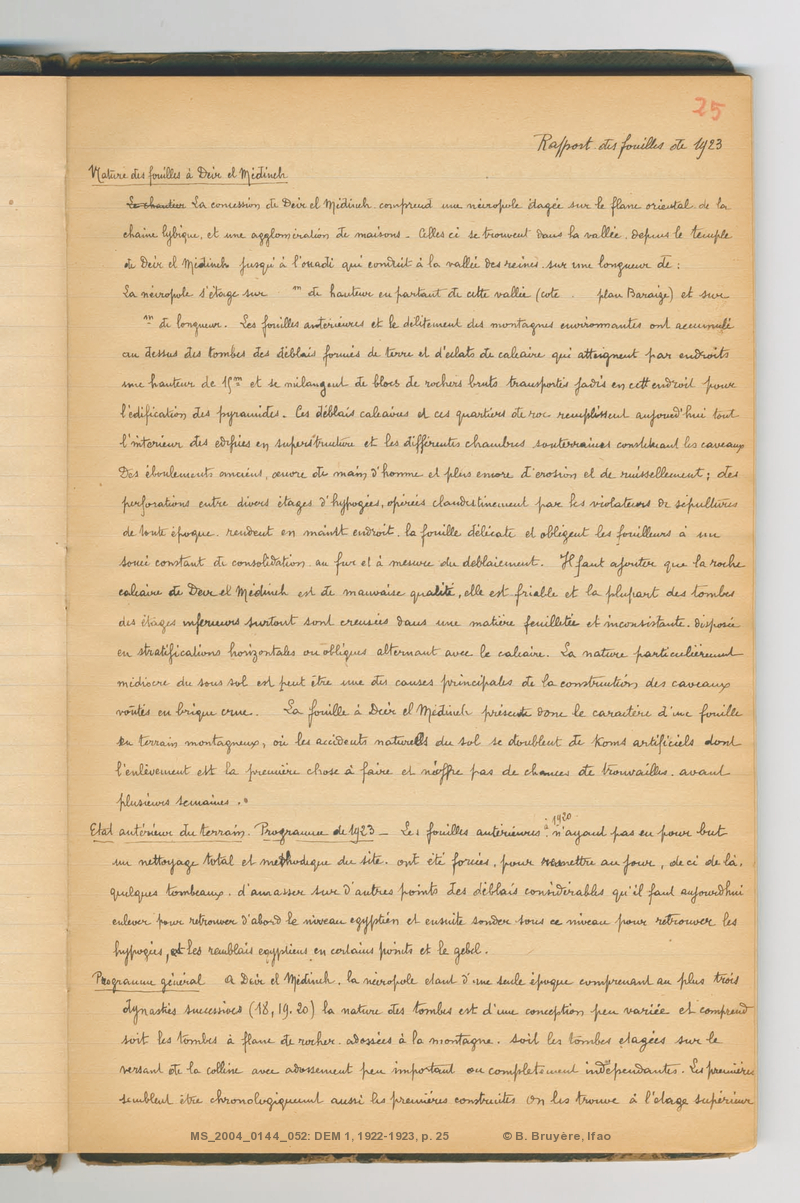 25
Rapport des fouilles de 1923
Nature des fouilles à Deir el Médineh
Le chantier La concession de Deir el Médineh comprend une nécropole étagée sur le flanc oriental de la
chaine lybique, et une agglomération de maisons. Celles ci se trouvent dans la vallée, depuis le temple
de Deir el Médineh jusqu'à l'ouadi qui conduit à la vallée des reines, sur une longueur de :
La nécropole s'étage sur m de hauteur en partant de cette vallée (cote . plan Baraize) et sur
m de longueur. Les fouilles antérieures et le délitement des montagnes environnantes ont accumulé
au dessus des tombes des déblais formés de terre et d'éclats de calcaire qui atteignent par endroits
une hauteur de 15m et se mélangent de blocs de rochers bruts transportés jadis en cet endroit pour
l'édification des pyramides. Ces déblais calcaires et ces quartiers de roc remplissent aujourd'hui tout
l'interieur des édifices en superstructure et les différentes chambres souterraines constituant les caveaux
Des éboulements anciens, œuvre de main d'homme et plus encore d'erosion et de ruissellement ; des
perforations entre divers étages d'hypogées, opérées clandestinement par les violateurs de sépultures
de toute époque, rendent en maint endroit, la fouille délicate et obligent les fouilleurs à un
souci constant de consolidation au fur et à mesure du déblaiement. Il faut ajouter que la roche
calcaire de Deir el Médineh est de mauvaise qualité, elle est friable et la plupart des tombes
des étages inferieurs surtout sont creusées dans une matière feuilletée et inconsistante, disposée
en stratifications horizontales ou obliques alternant avec le calcaire. La nature particulièrement
médiocre du sous sol est peut être une des causes principales de la construction des caveaux
voûtés en brique crue. La fouille à Deir el Médineh présente donc le caractère d'une fouille
en terrain montagneux, où les accidents naturels du sol se doublent de Koms artificiels dont
l'enlèvement est la première chose à faire et n'offre pas de chances de trouvailles, avant
plusieurs semaines.
Etat antérieur du terrain. Programme de 1923 _ Les fouilles antérieures à 1920 n'ayant pas eu pour but
un nettoyage total et methodique du site, ont été forcées, pour mettre au jour, de ci de là,
quelques tombeaux, d'amasser sur d'autres points des déblais considérables qu'il faut aujourd'hui
enlever pour retrouver d'abord le niveau egyptien et ensuite sonder sous ce niveau pour retrouver les
hypogées, les remblais egyptiens en certains points et le gebel.
Programme général A Deir el Médineh, la nécropole étant d'une seule époque comprenant au plus trois
dynasties successives (18, 19, 20) la nature des tombes est d'une conception peu variée et comprend
soit les tombes à flanc de rocher adossées à la montagne, soit les tombes etagées sur le
versant de la colline avec adossement peu important ou complètement indépendantes. Les premières
semblent être chronologiquement aussi les premières construites On les trouve à l'etage supérieur
MS_2004_0144_052: DEM 1, 1922-1923, p. 25 © B. Bruyère, Ifao